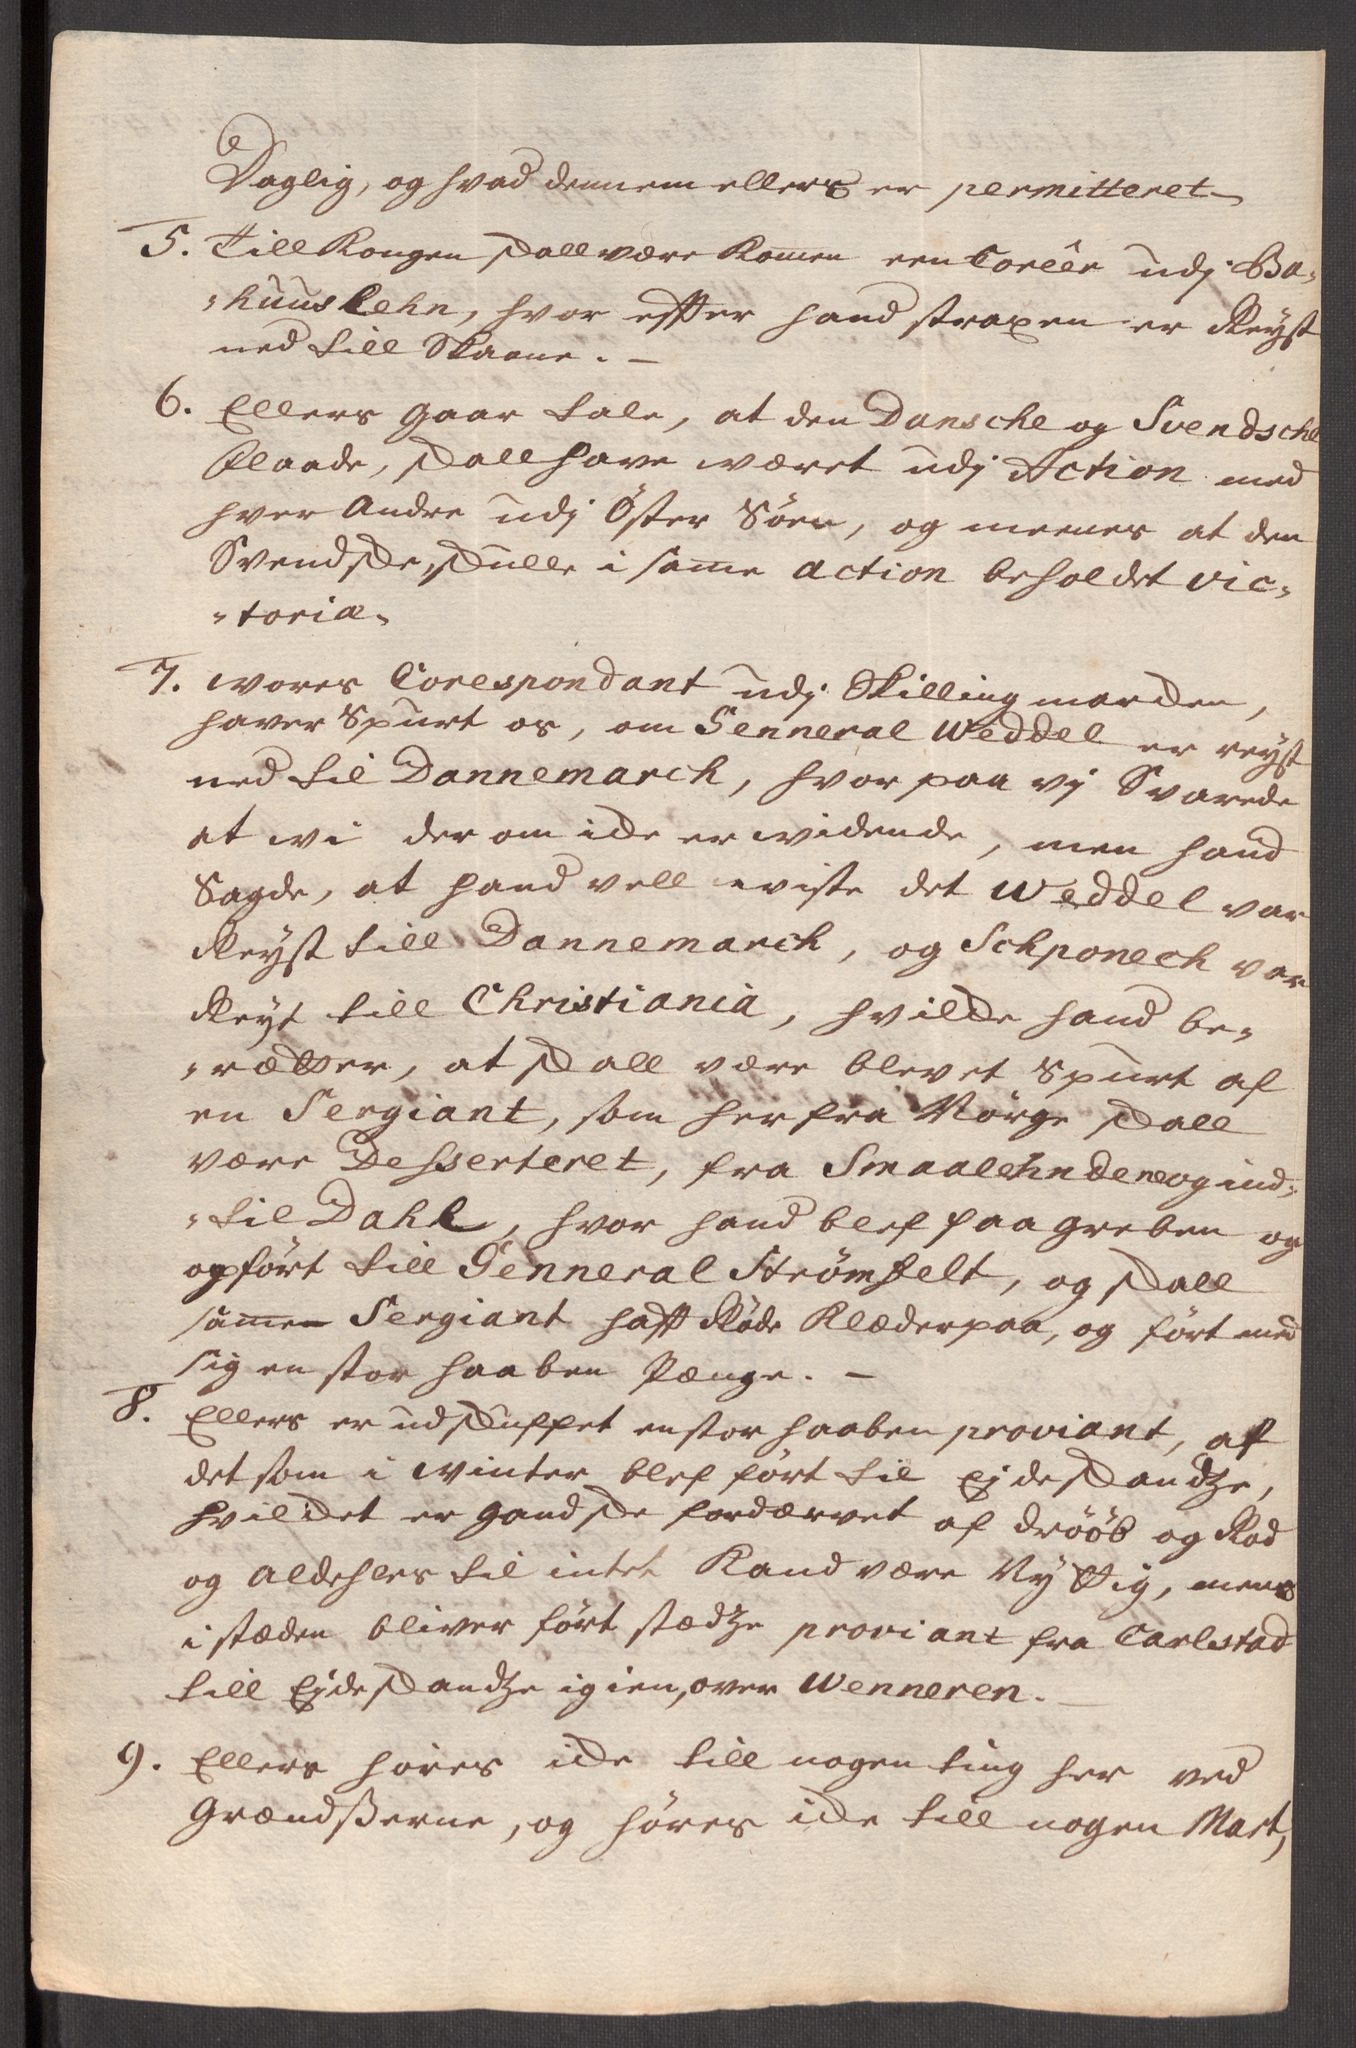 Daglig, og hvad dennem ellers er permitteret
5. Till Kongen skall være Kommen een Coreêr udj Ba-
-huuslehn, hvor effter hand straxen er Reyst
ned till Skaane. -
6. Ellers gaar tale, at den Dansche og Svendsche
Flaade, skall have været udj Action med
hver Andre udj Öster Söen, og meenes at den
Svendske, skulle i samme action beholdet vic-
-toria.
7. wores Corespondant udj Skillingmarcken,
haver Spurt os, om Genneral Weddel er reyst
ned til Dannemarch, hvor paa vj Svarede
at wi der om icke er widende, men hand
Sagde, at hand vell wiste det Weddel var
Reyst till Dannemarch, og Schponeck var
Reyst till Christiania, hvilcke hand be-
-rætter, at skall være blevet Spurt af
en Sergiant, som her fra Nörge skall
være Desserteret, fra Smaalehndene og ind-
-til Dahl, hvor hand blef paagreben og
opfört till Genneral Strömfelt, og skall
samme Sergiant hafft Röde Klæder paa, og fört med
sig en stor haaben Penge. -
8. Ellers er udskuffet en stor haaben proviant, af
det som i winter blef fört til Ejdeskandze,
hvilcket er gandske fordærvet af dröób og Raad
og aldehles til intet Kand være Nyttig, mens
i stæden bliver fört stædze proviant fra Carlstad
till Ejdeskandze igien, over Wenneren. -
9. Ellers höres icke till nogen ting her ved
Grændßerne, og höres icke till nogen Mart,